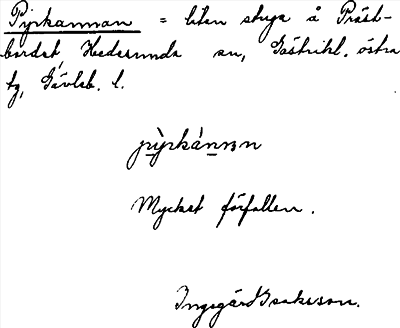 Pyrkannan = liten stuga å Präst-
bordet, Hedesunda sn, Gästrikl. östra
tg, Gävleb. l.
pỳrkánnɜn
Myckst förfallen.
Ingegärd Isaksson.